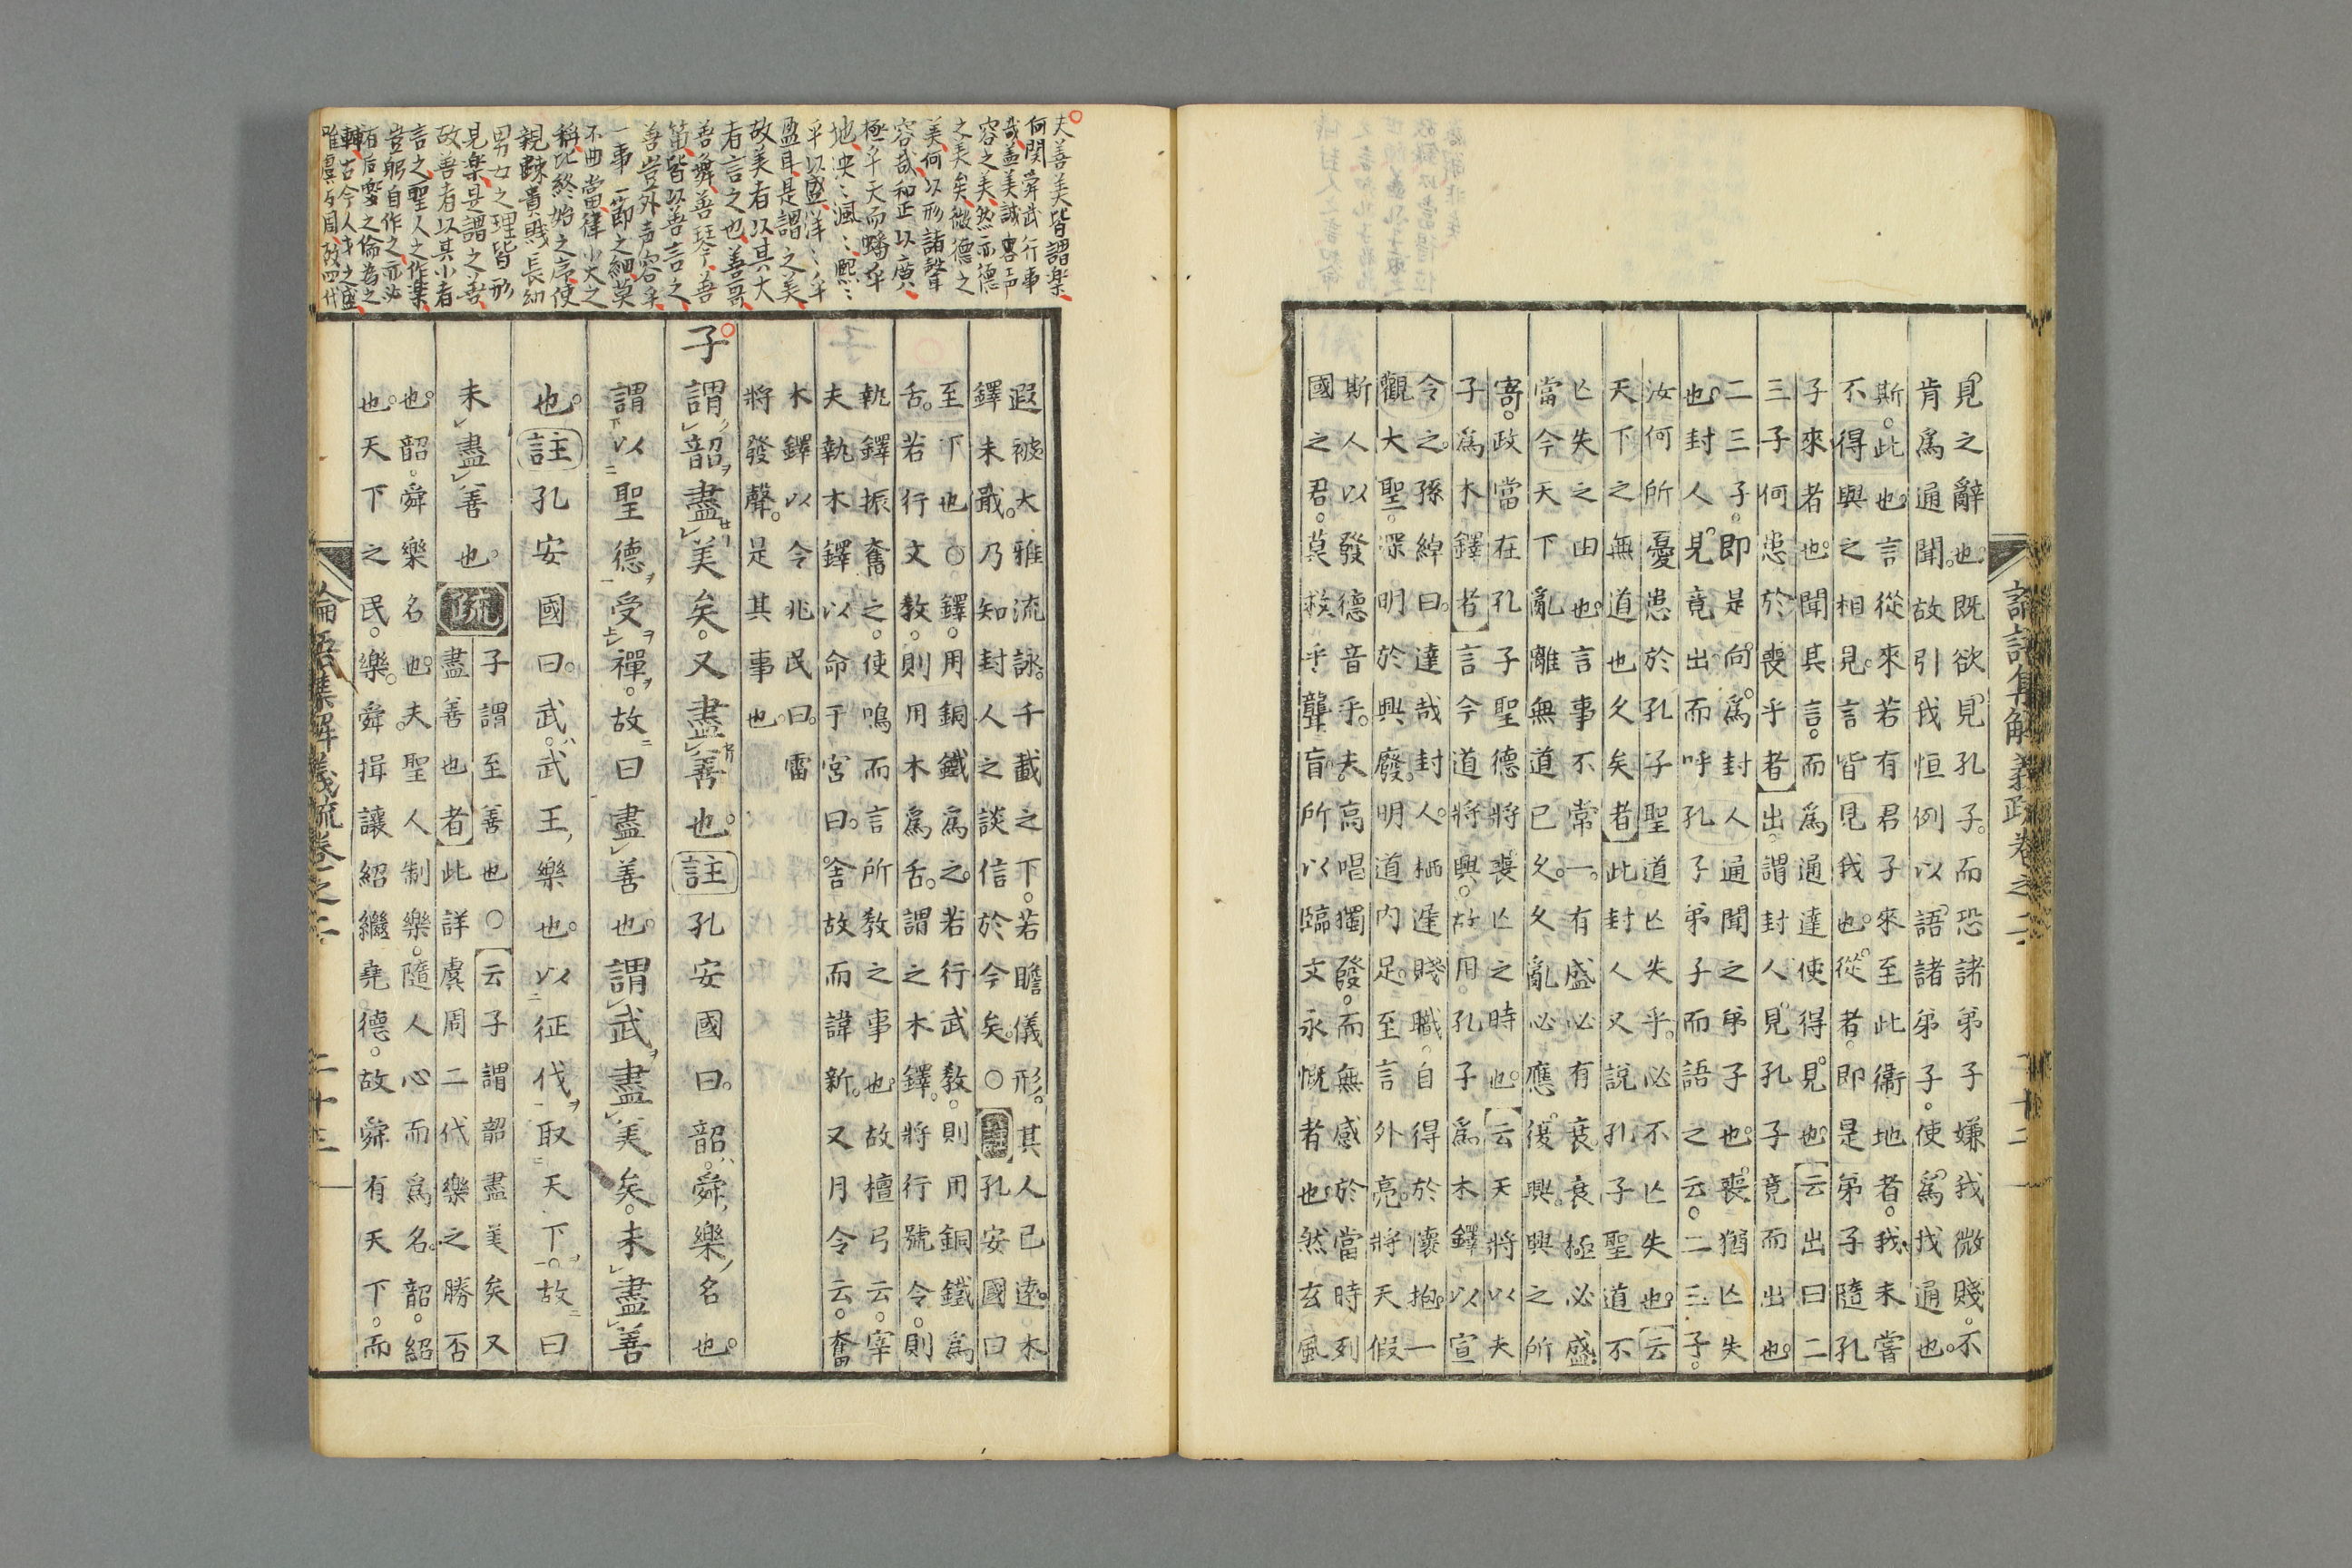 見之辭也既欲見孔子而恐諸弟子嫌我微賤不
肯爲通聞故引我恒例以語諸弟子使爲我通也
斯此也言從來若有君子來至此衞地者我未嘗
不得與之相見言皆見我也從者即是弟子隨孔
子來者也聞其言而爲通達使得見也【云出曰二
三子何患於喪乎者】出謂封人見孔子竟而出也
二三子即是向爲封人通聞之弟子也喪猶亾失
也封人見竟出而呼孔子弟子而語之云二三子
汝何所憂患於孔子聖道亾失乎必不亾失也【云
天下之無道也久矣者】此封人又說孔子聖道不
亾失之由也言事不常一有盛必有衰衰極必盛
當今天下亂離無道已久久亂必應復興興之所
寄政當在孔子聖德將喪亾之時也【云天將以夫
子爲木鐸者】言今道將興故用孔子爲木鐸以宣
令之孫綽曰達哉封人栖遲賤職自得於懷抱一
觀大聖深明於興廢明道內足至言外亮將天假
斯人以發德音乎夫高唱獨發而無感於當時列
國之君莫救乎聾盲所以臨文永慨者也然玄風
遐被大雅流詠千載之下若瞻儀形其人已遠木
鐸未戢乃知封人之談信於今矣○孔安國曰
至下也○鐸用銅鐵爲之若行武教則用銅鐵爲
舌若行文教則用木爲舌謂之木鐸將行號令則
執鐸振奮之使鳴而言所教之事也故檀弓云宰
夫執木鐸以命于宮曰舍故而諱新又月令云奮
木鐸以令兆民曰雷
將發聲是其事也
子謂韶盡美矣又盡善也註孔安國曰韶舜樂名也
謂以聖德受禪故曰盡善也謂武盡美矣未盡善
也註孔安國曰武武王樂也以征伐取天下故曰
未盡善也疏
子謂至善也○【云子謂韶盡美矣又
盡善也者】此詳虞周二代樂之勝否
也韶舜樂名也夫聖人制樂隨人心而爲名韶紹
也天下之民樂舜揖讓紹繼堯德故舜有天下而
論語集解義疏卷之二 二十三
夫善美皆謂樂
何関舜武行事
哉盖美誠聲
容之美然亦德
之美矣微德之
美何以形諸聲
容哉和正以廣
極乎天而蟠乎
地泱〻渢〻熙〻
乎以盛洋〻乎
盈耳是謂之美
故美者以其大
者言之也善哥
善舞善琴善
笛皆以善言之
善豈外声容乎
一事一節之細莫
不曲當律小大之
稱比終始之序使
親踈貴賎長幼
男女之理皆形
見樂是謂之善
故善者以其小者
言之聖人之作樂
豈躬自作之亦必
有后夔之倫為之
古今人才之盛
唯虞与周